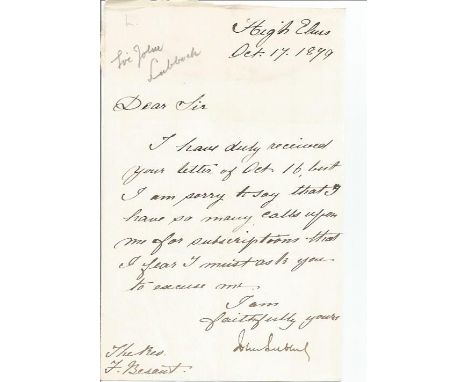 L.
Sir John
Lubbock
High Elms
Oct. 17. 1879
Dear Sir
I have duly received
your letter of Oct 16, but
I am sorry to say that I
have so many calls upon
me for subscriptions that
I fear I must ask you
to excuse me.
I am
faithfully yours
John Lubbock
The Rev.
F. Besant.